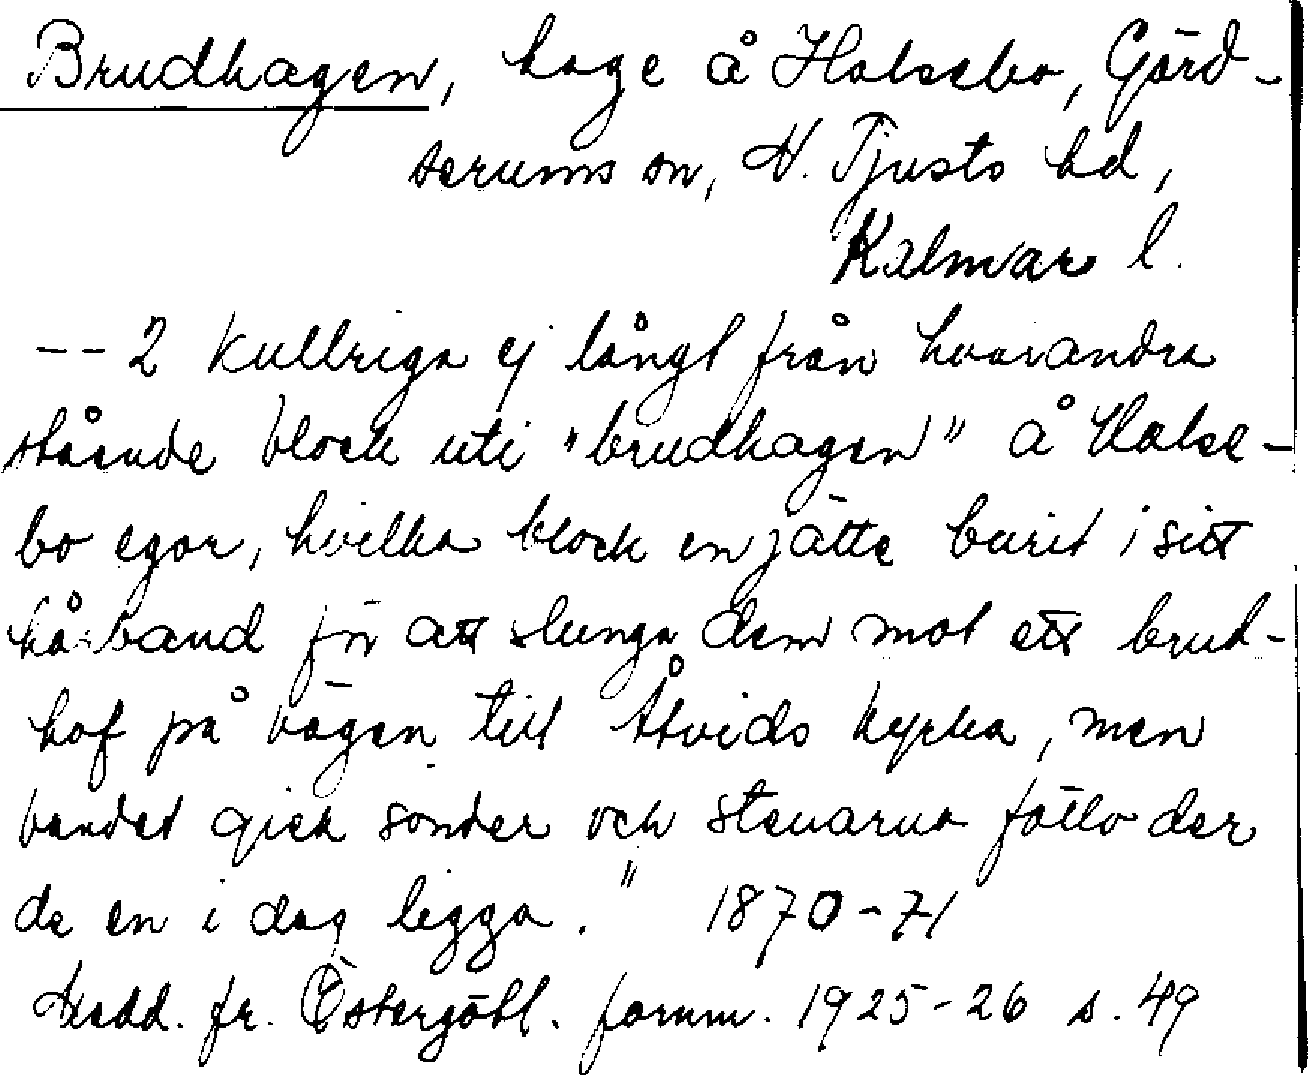 Brudhagen, hage å Halsebo, Gärd-
serums sn, N. Tjusts hd,
Kalmar l.
-- 2 kullriga ej långt från hvarandra
stående block uti "brudhagen" å Halse-
bo egor, hvilka block en jätte burit i sitt
hårband för att slunga dem mot ett brud-
hof på vägen till Åtvids kyrka, men
bandet gick sönder och stenarna föllo der
de en i dag ligga." 1870-71
Medd. fr. Östergötl. fornm. 1925-26 s. 49